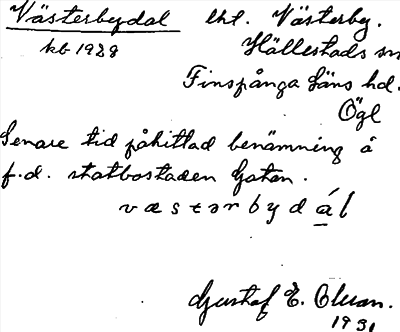 Västerbydal lht. Västerby.
kb 1928 Hällestads sn
Finspånga läns hd.
Ögl
Senare tid påhittad benämning å
f.d. statbostaden Gatan.
væstərbydá̲l
Gustaf E. Olsson.
1931